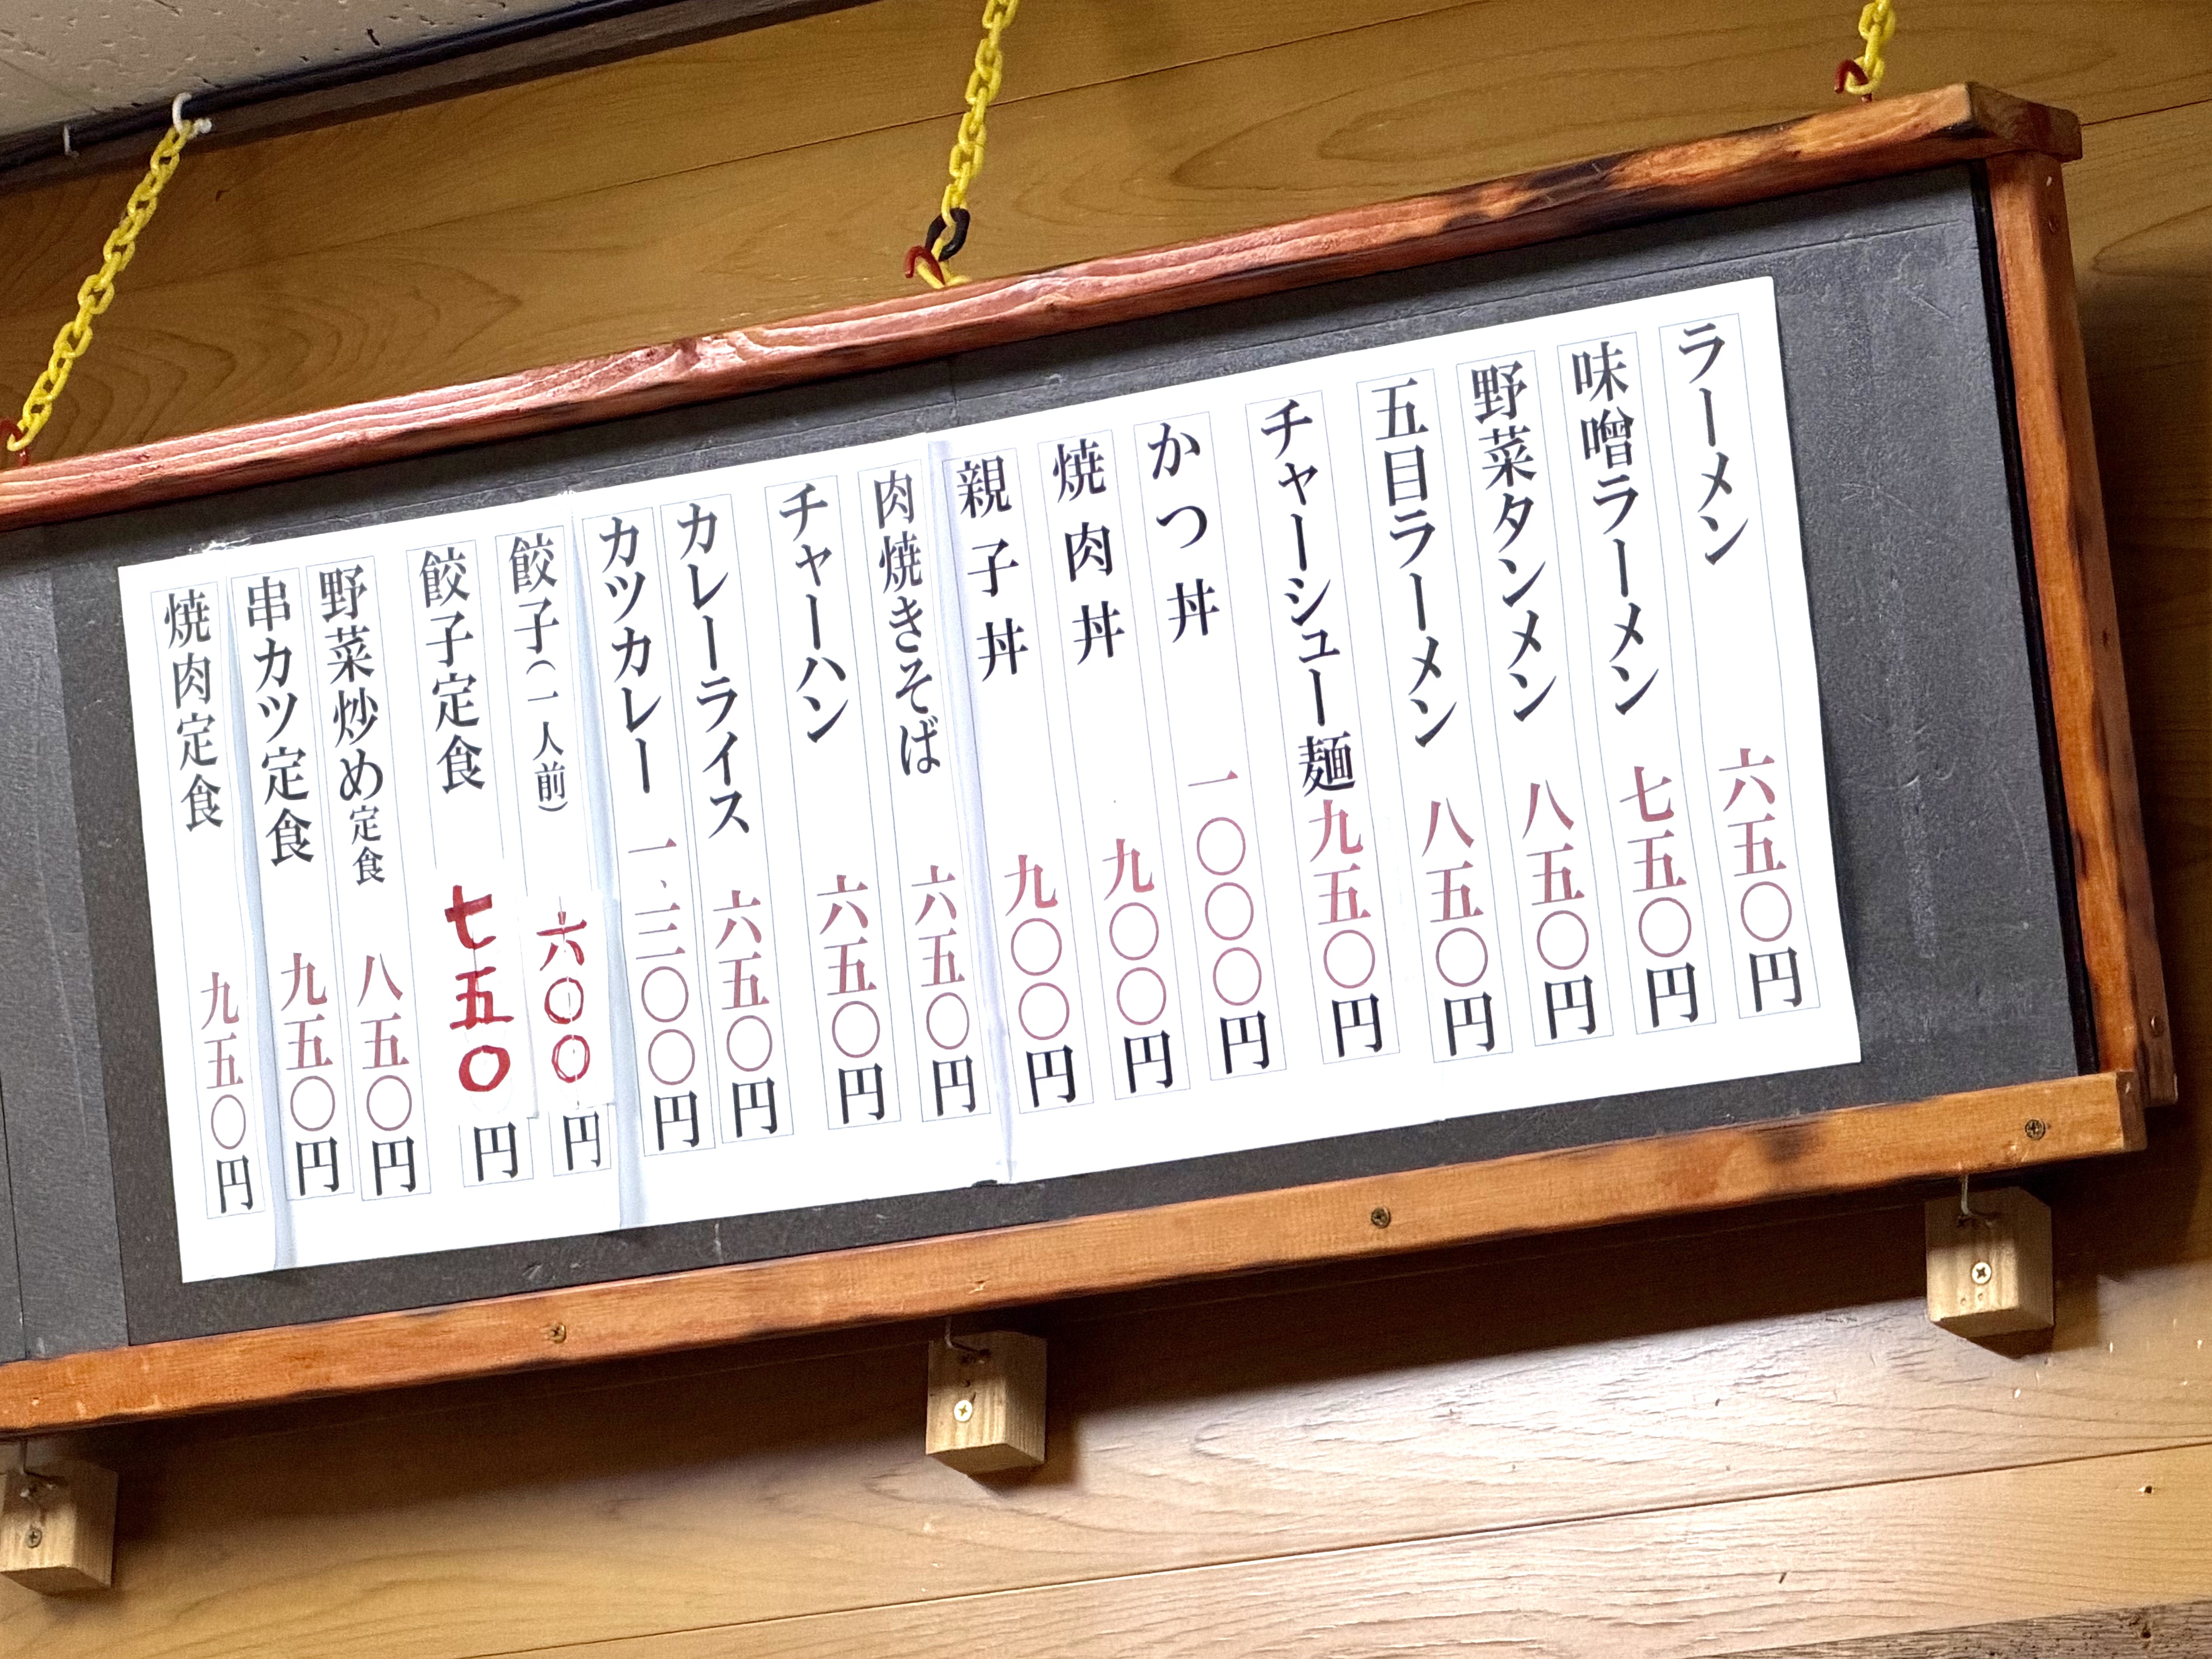 ラーメン 六五〇円
味噌ラーメン 七五〇円
野菜タンメン 八五〇円
五目ラーメン 八五〇円
チャーシュー麺 九五〇円
かつ丼 一〇〇〇円
焼肉丼 九〇〇円
親子丼 九〇〇円
肉焼きそば 六五〇円
チャーハン 六五〇円
カレーライス 六五〇円
カツカレー 一、三〇〇円
餃子（一人前） 六〇〇円
餃子定食 七五〇円
野菜炒め定食 八五〇円
串カツ定食 九五〇円
焼肉定食 九五〇円